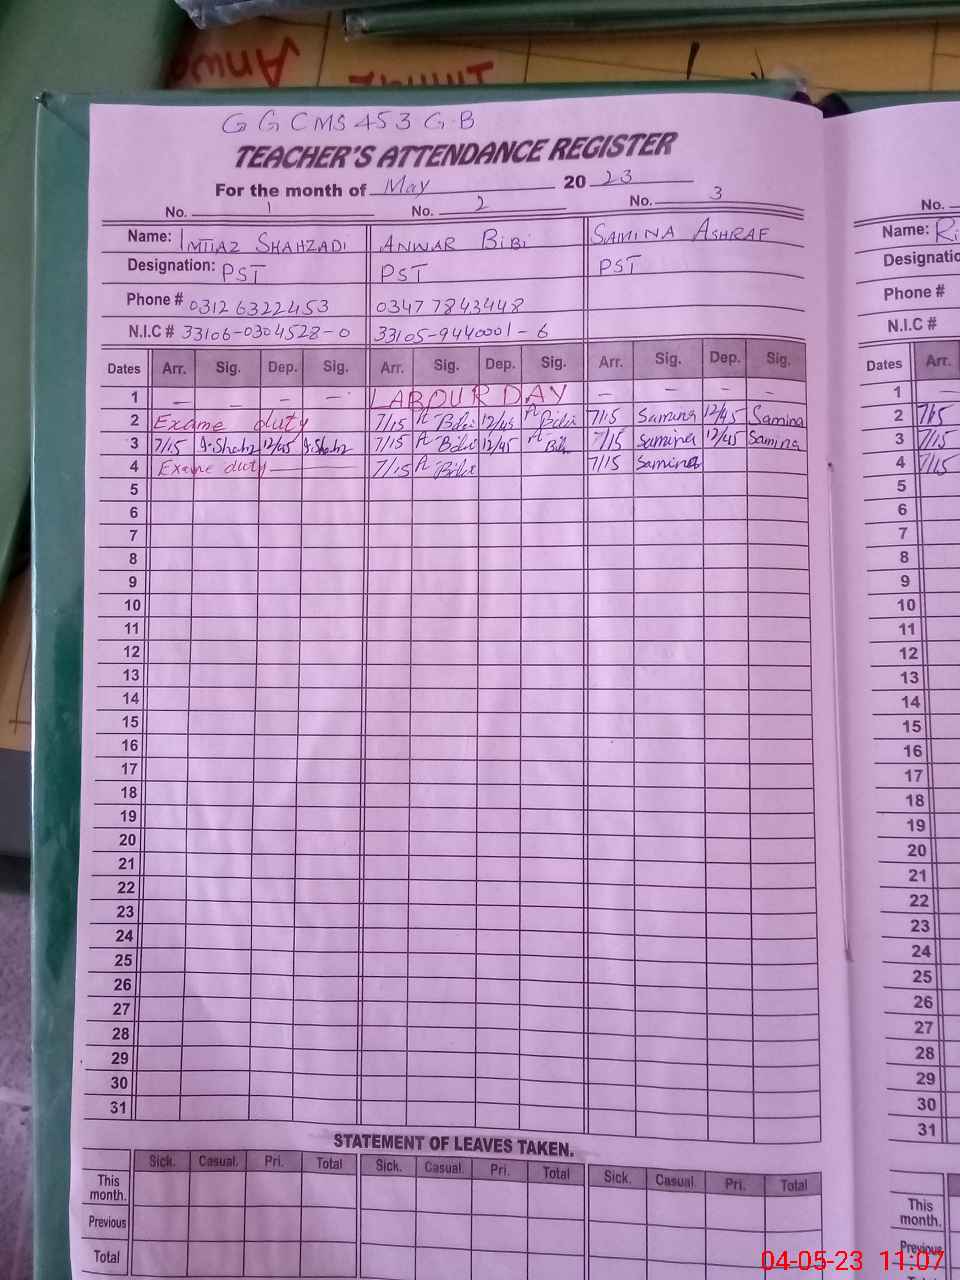 Anwa
Imtiaz
G G C M S 453 G-B
TEACHER'S ATTENDANCE REGISTER
For the month of May 20 23
No. 1 No. 2 No. 3 No.
Name: IMTIAZ SHAHZADI ANWAR BiBi SAMINA ASHRAF Name: Ri
Designation: PST PST PST Designatio
Phone # 0312 6322453 0347 7843448 Phone #
N.I.C # 33106-0304528-0 33105-9440001-6 N.I.C #
Dates Arr. Sig. Dep. Sig. Arr. Sig. Dep. Sig. Arr. Sig. Dep. Sig. Dates Arr.
1 — — — — LABOUR DAY — — — — 1 —
2 Exame duty 7/15 A Bibi 12/45 A Bibi 7/15 Samina 12/45 Samina 2 7/15
3 7/15 I.Shahz 12/45 I.Shahz 7/15 A Bibi 12/45 A Bibi 7/15 Samina 12/45 Samina 3 7/15
4 Exame duty 7/15 A Bibi 7/15 Samina 4 7/15
5 5
6 6
7 7
8 8
9 9
10 10
11 11
12 12
13 13
14 14
15 15
16 16
17 17
18 18
19 19
20 20
21 21
22 22
23 23
24 24
25 25
26 26
27 27
28 28
29 29
30 30
31 31
STATEMENT OF LEAVES TAKEN.
Sick. Casual. Pri. Total Sick. Casual. Pri. Total Sick. Casual. Pri. Total
This month. This month.
Previous Previous
Total
04-05-23 11:07